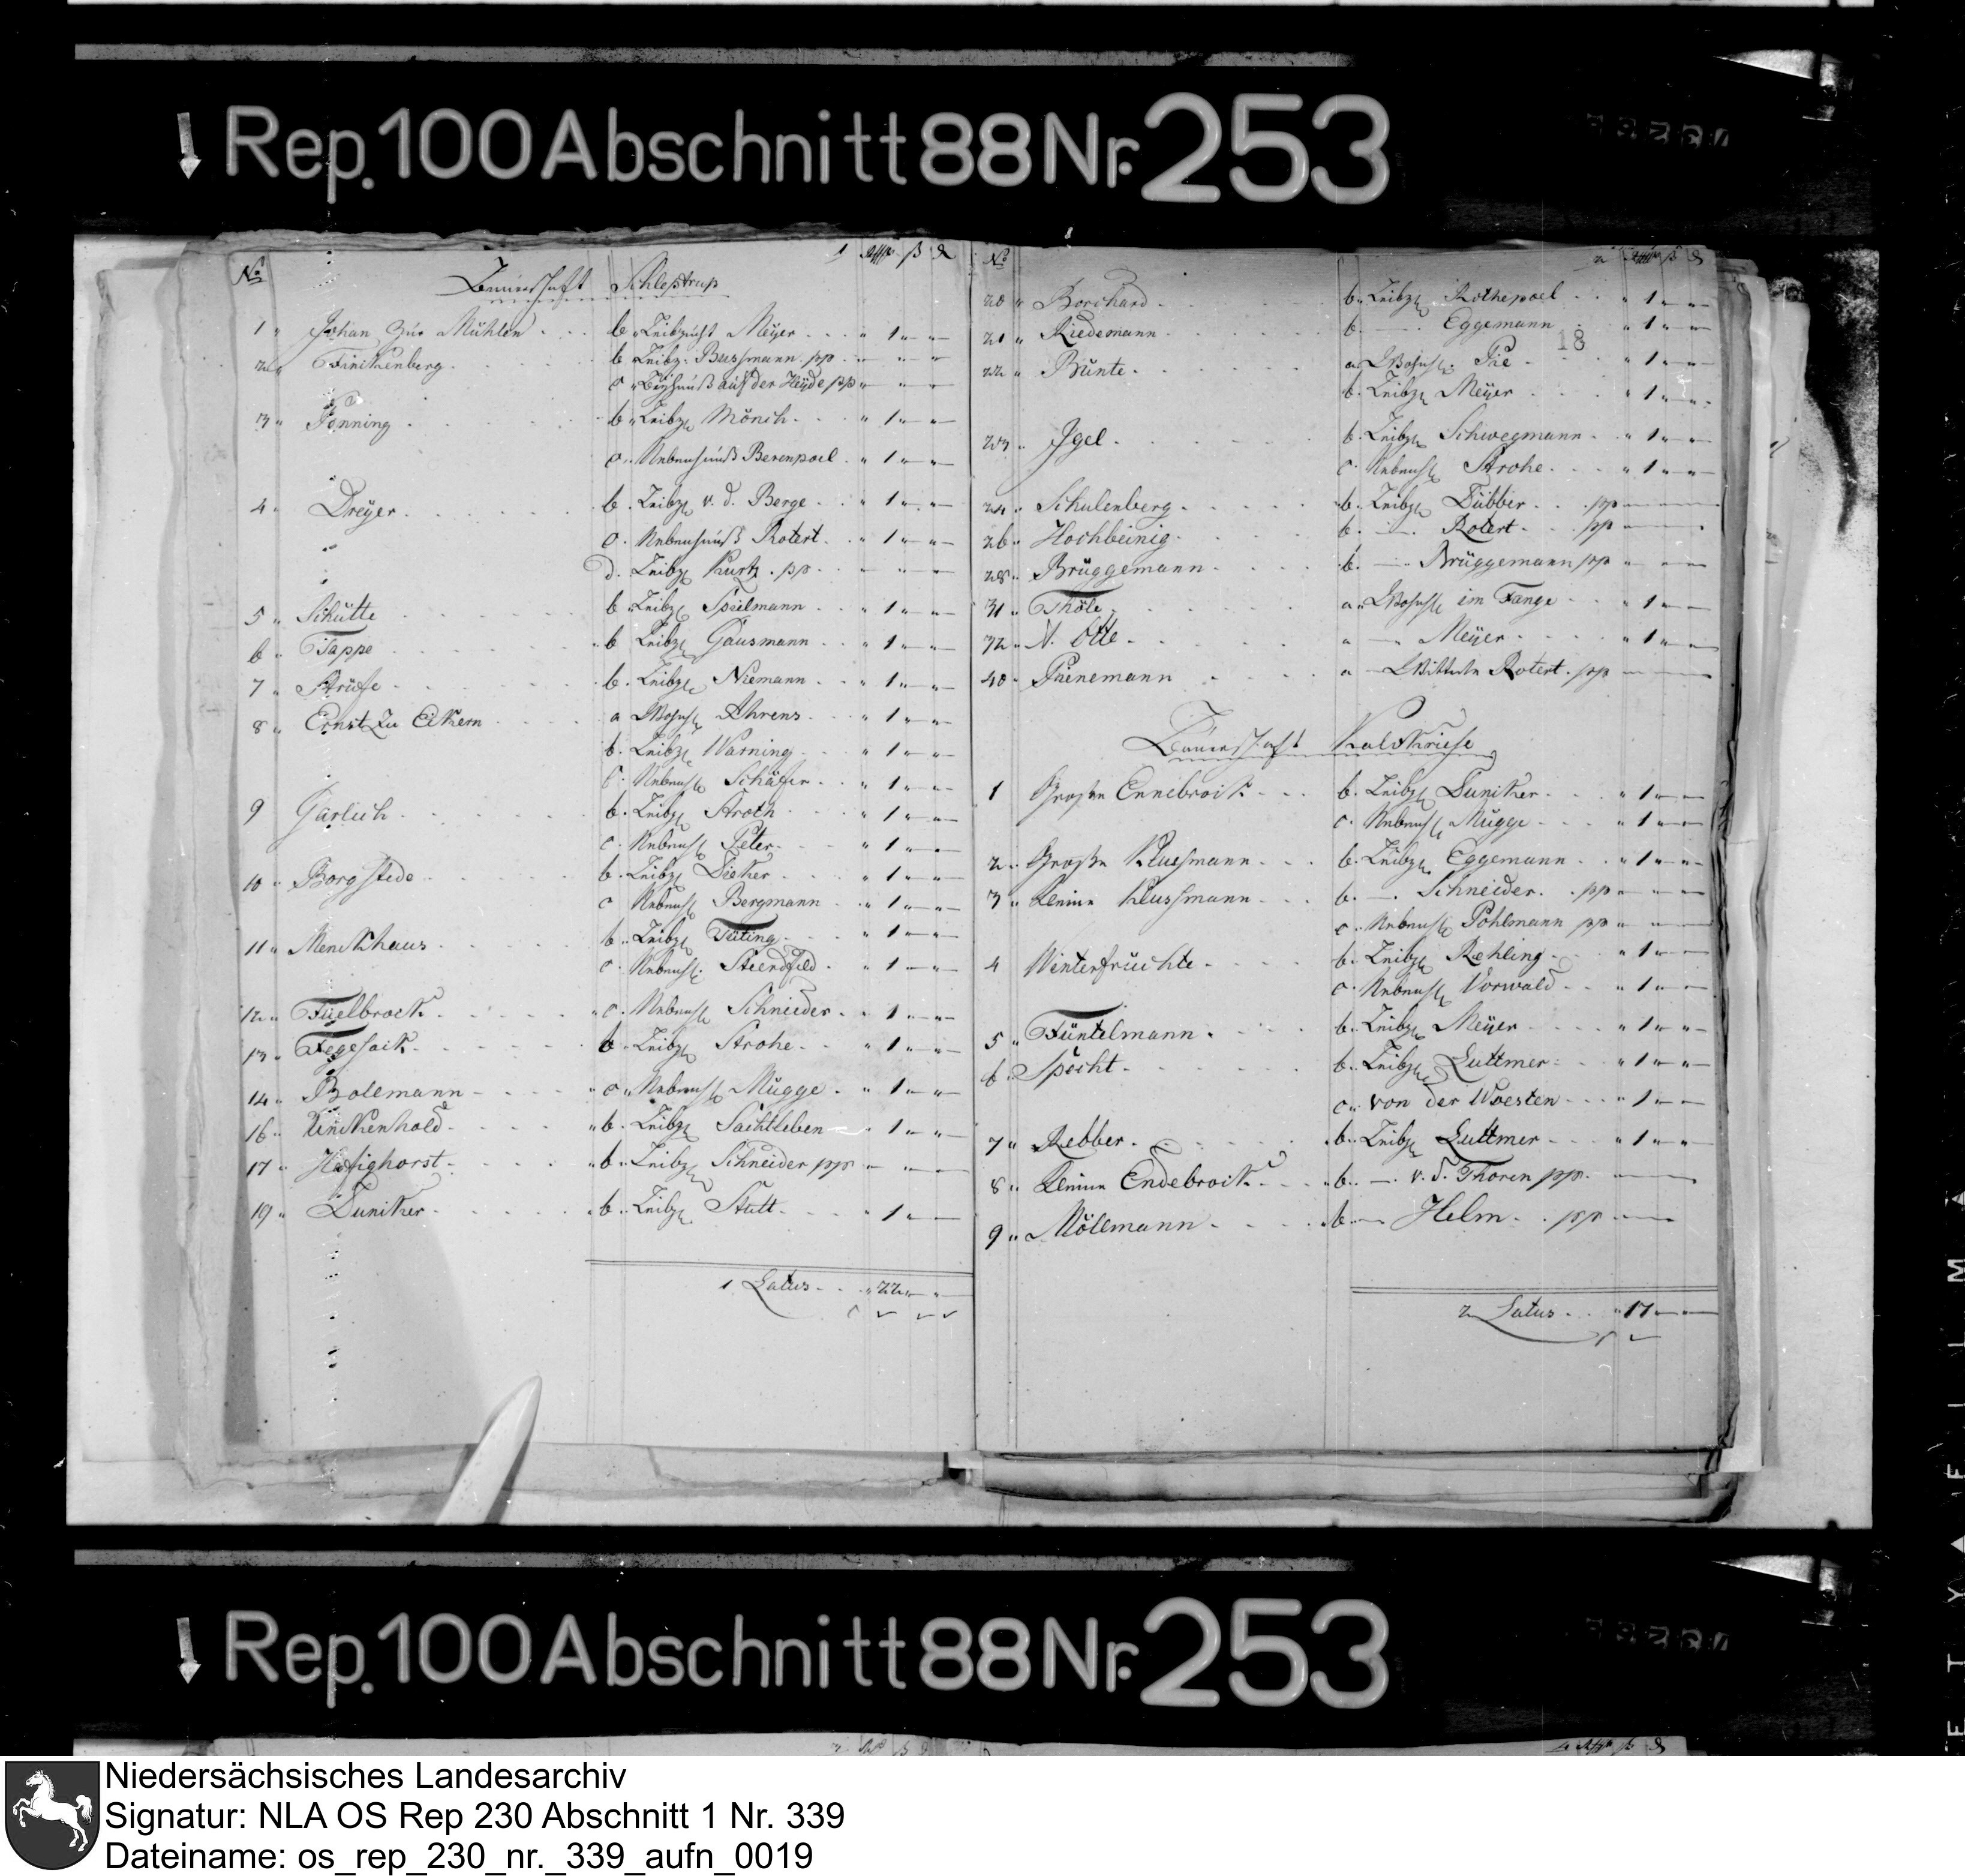 Rep. 100 Abschnitt 88 Nr. 253
No 1 Rthlr ß d
Bauerschaft Schleptrup
1 Johan Zur Mühlen b Leibzucht Meyer 1
2 Finckenberg b Leibz. Bussmann pp
c Backhauß auf der Heyde pp
3 Fenning b Leibz. Mönch 1
c Nebenhauß Berenpoel 1
4 Dreyer b Leibz. v. d. Berge 1
c Nebenhauß Rotert 1
d. Leibz. Kurtz pp
5 Schütte b Leibz. Spielmann 1
6 Tappe b Leibz. Gausmann 1
7 Struse b. Leibz. Niemann 1
8 Ernst Zu Eickern a Wohnh. Ahrens 1
b. Leibz. Warning 1
c Nebenh. Schäfer 1
9 Garlich b. Leibz. Stroth 1
c. Nebenh. Peter 1
10 Borgstede b. Leibz. Dieker 1
c Nebenh. Bergmann 1
11 Menckhaus b. Leibz. Tüting 1
c. Nebenh. Steinfeld 1
12 Füelbrock c. Nebenh. Schnieder 1
13 Fegesack b Leibz. Strohe 1
14 Bolemann c Nebenh. Mügge 1
16 Vinckenhold b. Leibz. Sachtleben 1
17 Hesighorst b. Leibz. Schneider pp
19 Duncker b. Leibz. Stutt 1
1 Latus 22
No 2 Rthlr ß d
18
20 Borchard b. Leibz. Rothepoel 1
21 Riedemann b. — Eggemann 1
22 Bünte a Wohnh. Pie 1
b. Leibz. Meyer 1
23 Igel b. Leibz. Schwegmann 1
c. Nebenh. Strohe 1
24 Schulenberg b. Leibz. Dübber pp
26 Hochbeinig b. — Rotert pp
28 Brüggemann b. — Brüggemann pp
31 Thöle a Wohnh. im Fange 1
32 N. Otte a — Meyer 1
40 Pienemann a — Wittwe Rotert pp
Bauerschaft Kalckriese
1 Große Ennebrock b. Leibz. Duncker 1
c. Nebenh. Mügge 1
2 Große Klusmann b. Leibz. Eggemann 1
3 Kleine Klussmann b. — Schneider pp
c. Nebenh. Pohlmann pp
4 Winterfrüchte b. Leibz. Rehling 1
c. Nebenh. Vorwald 1
5 Füntelmann b. Leibz. Meyer 1
6 Specht b. Leibz. Luttmer 1
c. von der Woesten 1
7 Rebber b. Leibz. Luttmer 1
8 Kleine Endebrock b. — v. d. Thoren pp
9 Möllmann b — Helm pp
2 Latus 17
Rep. 100 Abschnitt 88 Nr. 253
Niedersächsisches Landesarchiv
Signatur: NLA OS Rep 230 Abschnitt 1 Nr. 339
Dateiname: os_rep_230_nr._339_aufn_0019